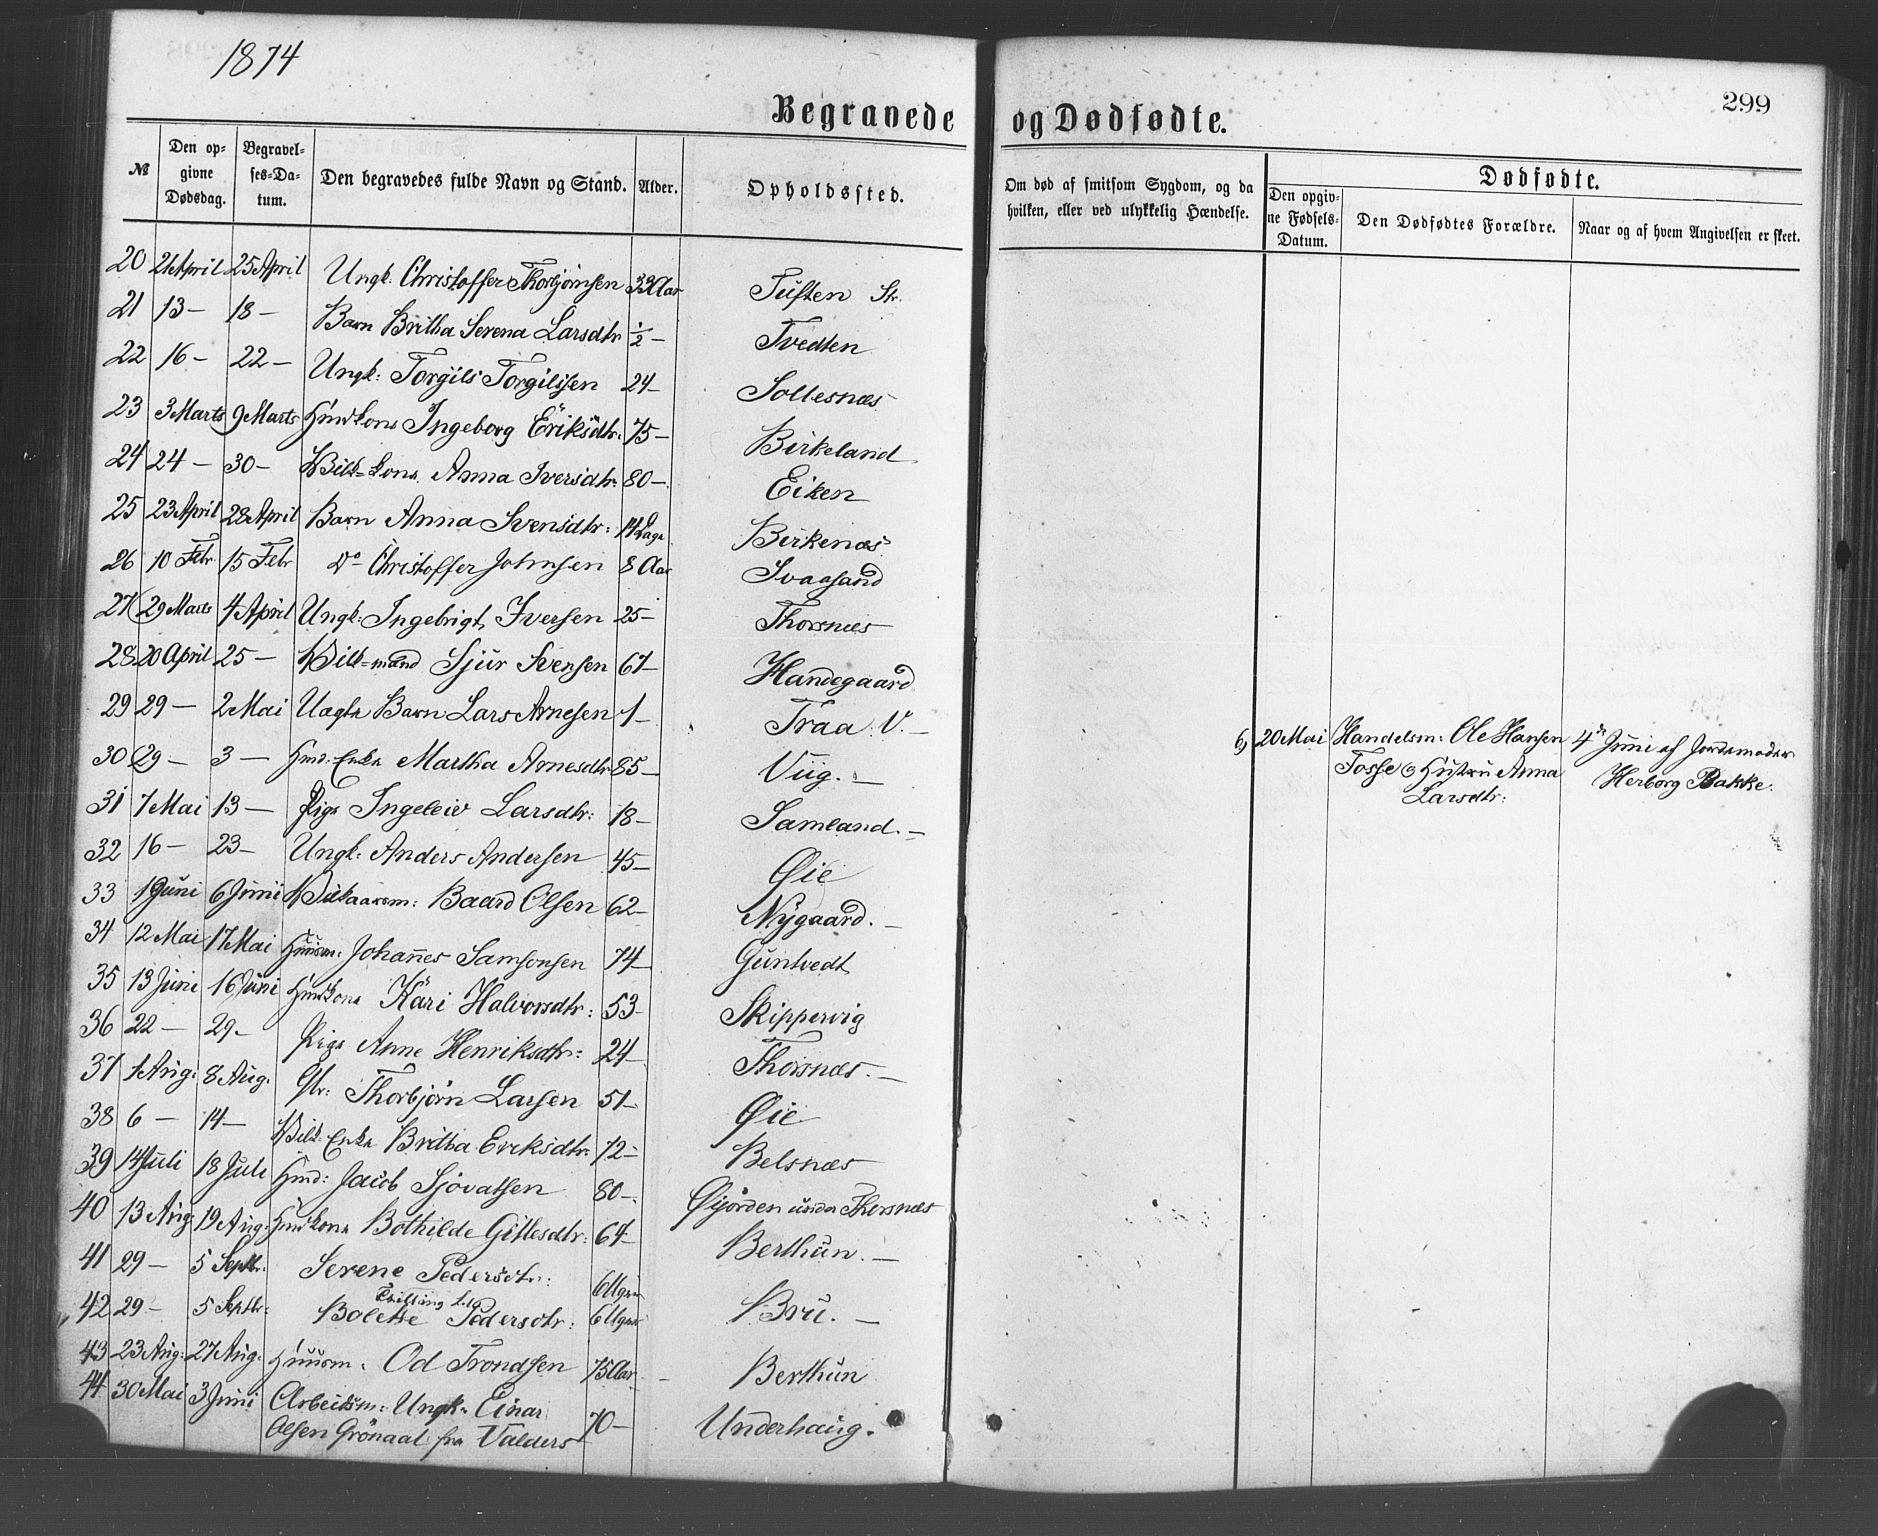 1874
299
Begravede og Dødfødte.
№ Den opgivne Dødsdag. Begravelses-Datum. Den begravedes fulde Navn og Stand. Alder. Opholdssted. Om død af smitsom Sygdom, og da hvilken, eller ved ulykkelig Hændelse.
Dødfødte.
Den opgivne Fødsels-Datum. Den Dødfødtes Forældre. Naar og af hvem Angivelsen er skeet.
20 21 April 25 April Ungk. Christoffer Thorbjörnsen 33 Aar Tuften St.
21 13 – 18 – Barn Britha Serena Larsdtr ½ – Tvedten
22 16 – 22 – Ungk: Torgils Torgilssen 24 – Sollesnæs
23 3 Marts 9 Marts Hmdkone Ingeborg Eriksdtr. 75 – Birkeland
24 24 – 30 – Kilk=kone Anna Iversdtr: 80 – Eiken
25 23 April 28 April Barn Anna Svensdtr: 14 Dage Birkenæs
26 10 Febr 15 Febr Do Christoffer Johnsen 8 Aar Svaasand
27 29 Marts 4 April Ungk: Ingebrigt Iversen 25 – Thorsnæs
28 20 April 25 – Kilk=mand Sjur Svensen 67 – Handegaard
29 29 – 2 Mai Uægte Barn Lars Arnesen 1 – Traa V. –
30 29 – 3 – Hmd: Enke Martha Arnesdtr 85 – Viig. –
6) 20 Mai Handelsm: Ole Hansen 4de Juni af Jordemoder
Tosse og Hustru Anna Herborg Bakke.
Larsdtr:
31 7 Mai 13 – Pige Ingeleiv Larsdtr: 18 – Samland. –
32 16 – 23 – Ungk: Anders Andersen 45 – Øie
33 1 Juni 6 Juni Kilkaarsm: Baard Olsen 62 – Nygaard. –
34 12 Mai 17 Mai Huusm: Johannes Samsonsen 74 – Guntvedt
35 13 Juni 16 Juni Hmdkone Kari Halvorsdtr: 53 – Skippervig
36 22 – 29 – Pige Anne Henriksdtr: 24 – Thorsnæs. –
37 1 Aug: 8 Aug: Str: Thorbjörn Larsen 51 – Øie
38 6 – 14 – Kilk: Enke Britha Eriksdtr: 72 – Belsnæs
39 14 Juli 18 Juli Hmd: Jacob Sjovatsen 80 – Øijorden under Thorsnæs
40 13 Aug 19 Aug: Hmdkone Bothilde Gillesdtr: 64 – Berthun. –
41 29 – 5 Septbr: Serene Pedersdtr: 6 Uger
Tvilling
42 29 – 5 Septbr: Bolette Pedersdtr: 6 Uger Bru. –
43 23 Aug: 27 Aug: Huusm. Od Trondsen 75 Aar – Berthun
44 30 Mai 3 Juni Arbeidsm: Ungk: Einar
Olsen Grönaal fra Valders 70 – Underhaug.